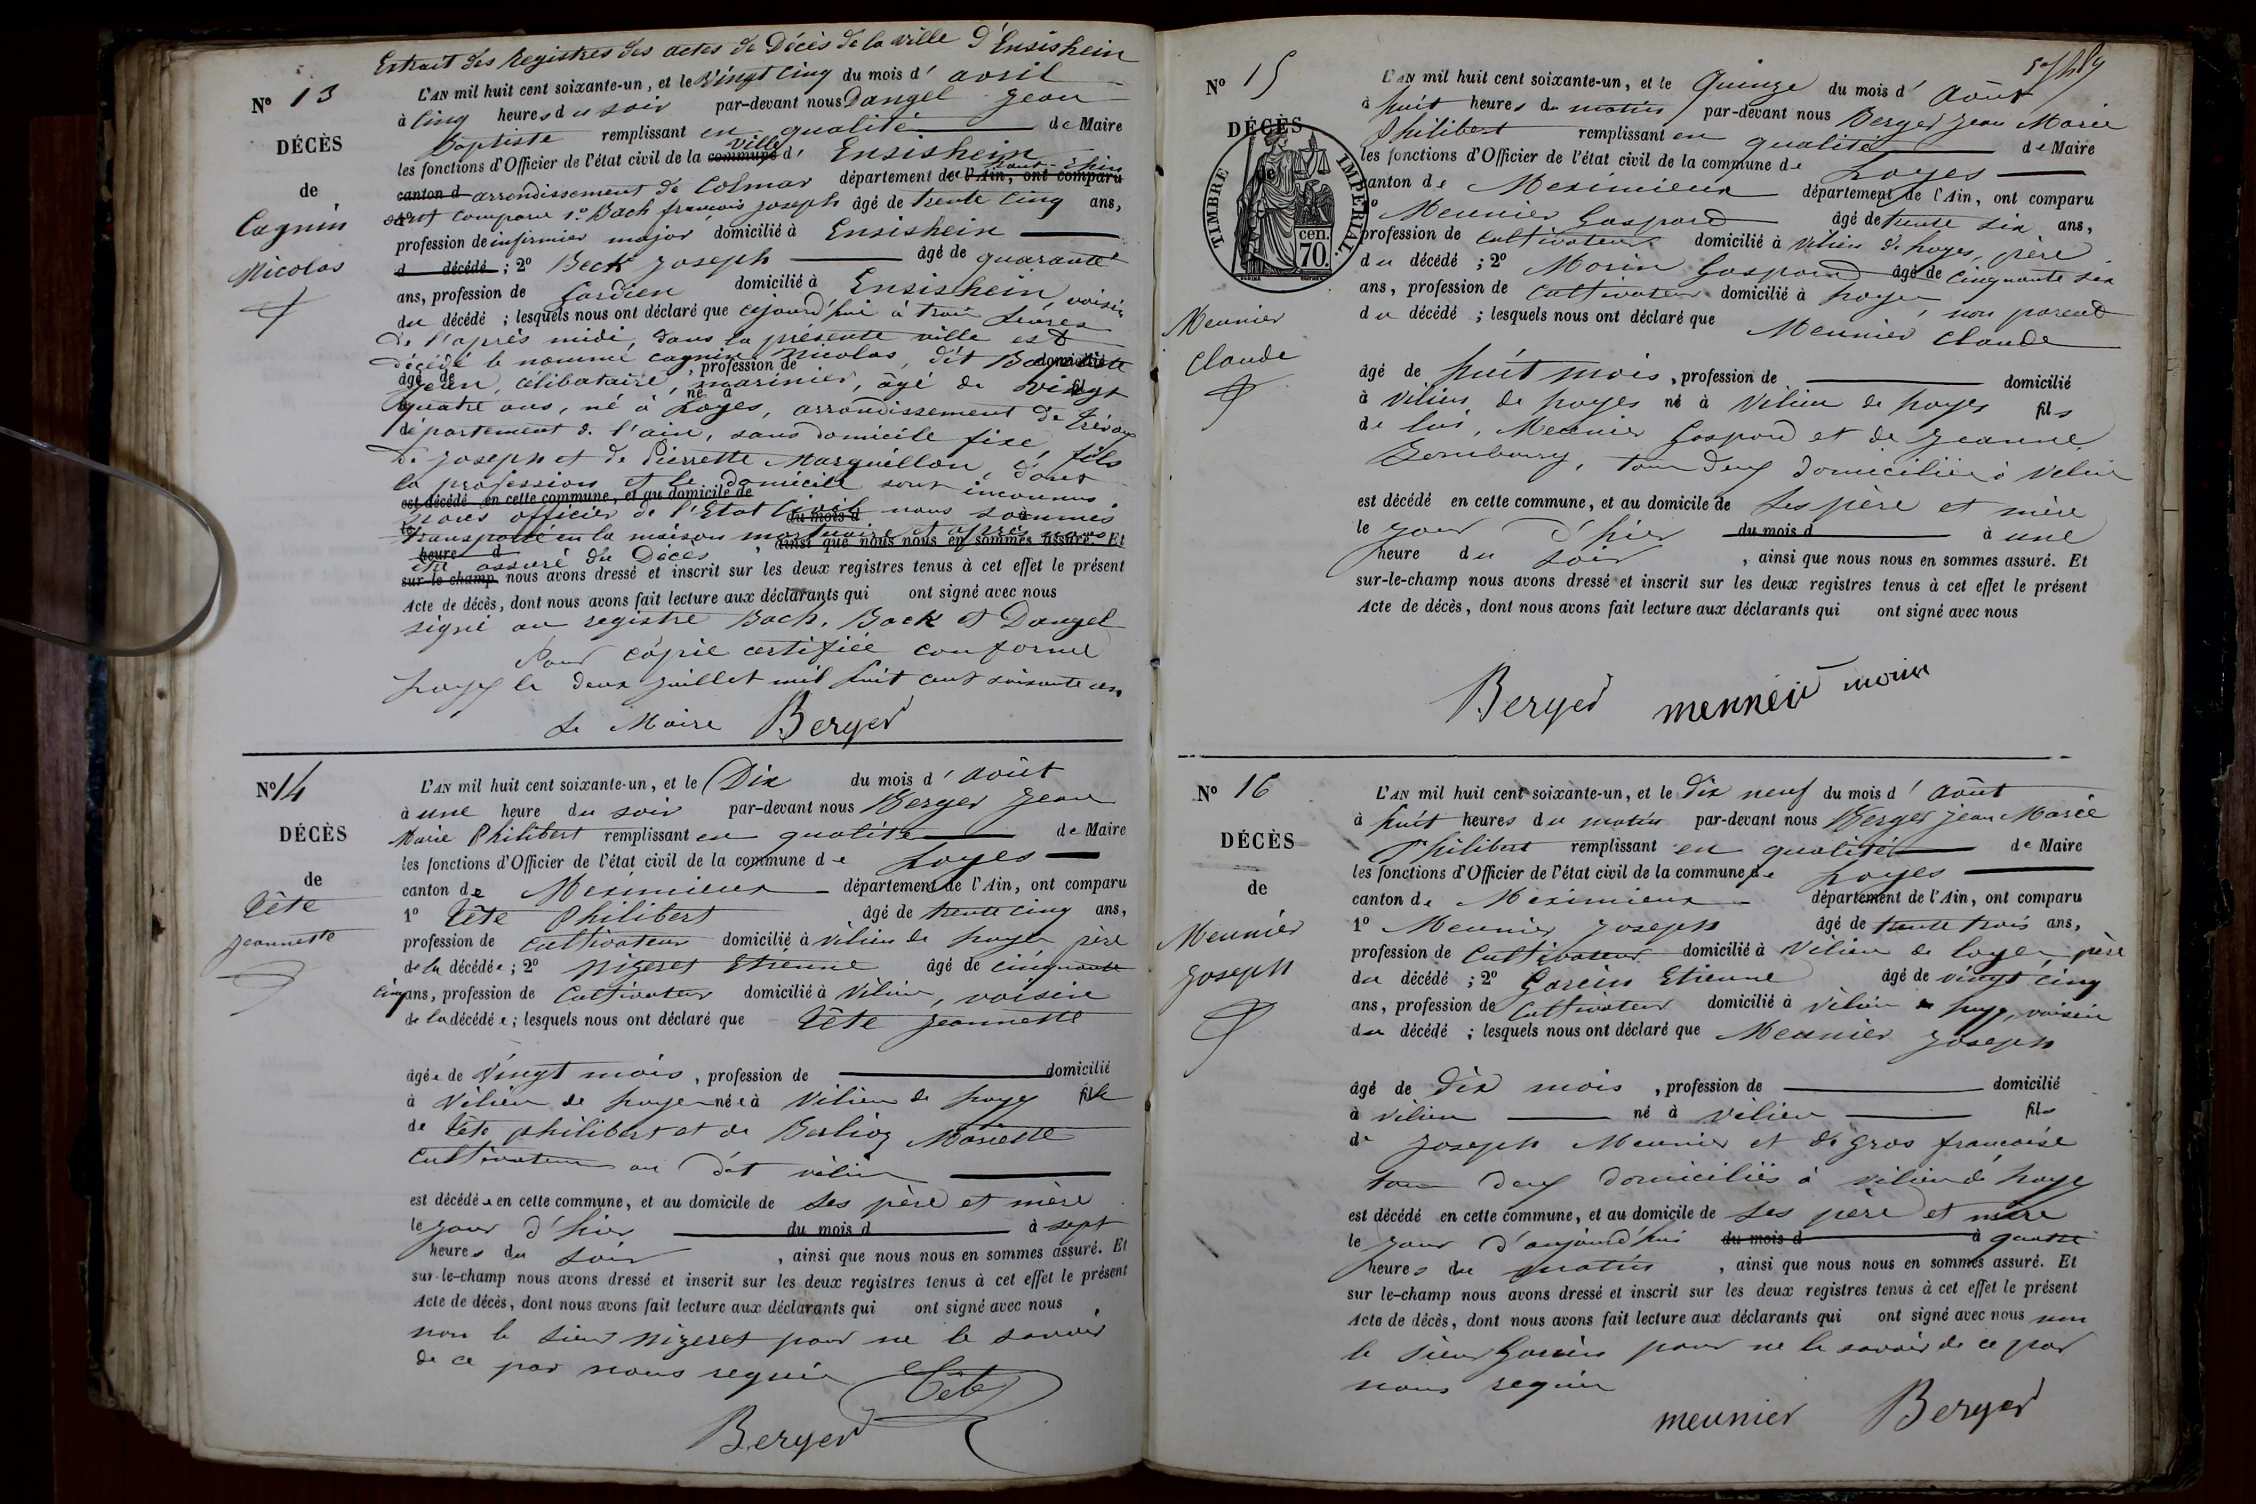 Extrait des Registres des actes de Décès de la ville d'Ensishein
N° 13
DÉCÈS
de
Cagnin
Nicolas
L'AN mil huit cent soixante-un, et le Vingt Cinq du mois d' avril
à Cinq heures du soir par-devant nous Dangel Jean
Baptiste remplissant en qualité de Maire
les fonctions d'Officier de l'état civil de la commune ville d' Ensishein
canton d arrondissement de Colmar département de l'Ain, ont comparu haut-Rhin
sont comparu 1° Bach françois joseph âgé de trente Cinq ans,
profession de infirmier major domicilié à Ensishein
d décédé ; 2° Beck Joseph âgé de quarante
ans, profession de Gardien domicilié à Ensishein, voisin
du décédé ; lesquels nous ont déclaré que cejourd'hui à trois heures
de l'après midi, dans la présente ville est
décédé le nommé Cagnin Nicolas, dit Baptiste domicilié
âgé de Jean, célibataire, profession de marinier, âgé de vingt
quatre ans, né à Loyes, arrondissement de Trévoux
département de l'ain, sans domicile fixe, fils
de Joseph et de Pierrette Marguillon, dont
la profession et le domicile sont inconnus
est décédé en cette commune, et au domicile de
nous officier de l'Etat Civil nous sommes
le du mois d à
transporté en la maison mortuaire et après nous
heure d ainsi que nous nous en sommes assuré. Et
être assuré du Décès
sur-le-champ nous avons dressé et inscrit sur les deux registres tenus à cet effet le présent
Acte de décès, dont nous avons fait lecture aux déclarants qui ont signé avec nous
signé au registre Bach, Beck et Dangel
Pour copie certifiée conforme
Loyes le deux juillet mil huit cent soixante un
Le Maire Berger
N° 14
DÉCÈS
de
Tête
Jeannette
L'AN mil huit cent soixante-un, et le Dix du mois d' août
à une heure du soir par-devant nous Berger Jean
Marie Philibert remplissant en qualité de Maire
les fonctions d'Officier de l'état civil de la commune de Loyes
canton de Meximieux département de l'Ain, ont comparu
1° Tête Philibert âgé de trente cinq ans,
profession de Cultivateur domicilié à Vilieu de Loyes père
de la décédée ; 2° Nizeret Etienne âgé de cinquante
cinq ans, profession de Cultivateur domicilié à Vilieu, voisin
de la décédée ; lesquels nous ont déclaré que Tête Jeannette
âgée de Vingt mois, profession de domicilié
à Vilieu de Loyes née à Vilieu de Loyes fille
de Tête philibert et de Berlioz Mariette
Cultivateurs au dit vilieu
est décédée en cette commune, et au domicile de ses père et mère
le jour d'hier du mois d à sept
heures du soir, ainsi que nous nous en sommes assuré. Et
sur-le-champ nous avons dressé et inscrit sur les deux registres tenus à cet effet le présent
Acte de décès, dont nous avons fait lecture aux déclarants qui ont signé avec nous,
non le sieur Nizeret pour ne le savoir
de ce par nous requis Tête
Berger
N° 15
DÉCÈS
de
TIMBRE IMPÉRIAL.
cen.
70.
Meunier
Claude
L'AN mil huit cent soixante-un, et le Quinze du mois d' Août
à huit heures du matin par-devant nous Berger Jean Marie
Philibert remplissant en qualité de Maire
les fonctions d'Officier de l'état civil de la commune de Loyes
canton de Meximieux département de l'Ain, ont comparu
1° Meunier Gaspard âgé de trente six ans,
profession de Cultivateur domicilié à Vilieu de Loyes, père
du décédé ; 2° Morin Gaspard âgé de cinquante six
ans, profession de Cultivateur domicilié à Loyes, non parent
du décédé ; lesquels nous ont déclaré que Meunier Claude
âgé de huit mois, profession de domicilié
à Vilieu de Loyes né à Vilieu de Loyes fils
de lui, Meunier Gaspard et de Jeanne
tous deux domiciliés à Vilieu
est décédé en cette commune, et au domicile de ses père et mère
le jour d'hier du mois d à une
heure du soir, ainsi que nous nous en sommes assuré. Et
sur-le-champ nous avons dressé et inscrit sur les deux registres tenus à cet effet le présent
Acte de décès, dont nous avons fait lecture aux déclarants qui ont signé avec nous
Berger meunier morin
N° 16
DÉCÈS
de
Meunier
Joseph
L'AN mil huit cent soixante-un, et le dix neuf du mois d' Août
à huit heures du matin par-devant nous Berger Jean Marie
Philibert remplissant en qualité de Maire
les fonctions d'Officier de l'état civil de la commune de Loyes
canton de Meximieux département de l'Ain, ont comparu
1° Meunier Joseph âgé de trente trois ans,
profession de Cultivateur domicilié à Vilieu de Loyes père
du décédé ; 2° Garin Etienne âgé de vingt cinq
ans, profession de Cultivateur domicilié à Vilieu de Loyes, voisin
du décédé ; lesquels nous ont déclaré que Meunier Joseph
âgé de dix mois, profession de domicilié
à vilieu né à vilieu fils
de Joseph Meunier et de Gros francoise
tous deux domiciliés à vilieu de Loyes
est décédé en cette commune, et au domicile de ses père et mère
le jour d'aujourd'hui du mois d à quatre
heures du matin, ainsi que nous nous en sommes assuré. Et
sur le-champ nous avons dressé et inscrit sur les deux registres tenus à cet effet le présent
Acte de décès, dont nous avons fait lecture aux déclarants qui ont signé avec nous non
le sieur Garin pour ne le savoir de ce par
nous requis
meunier Berger